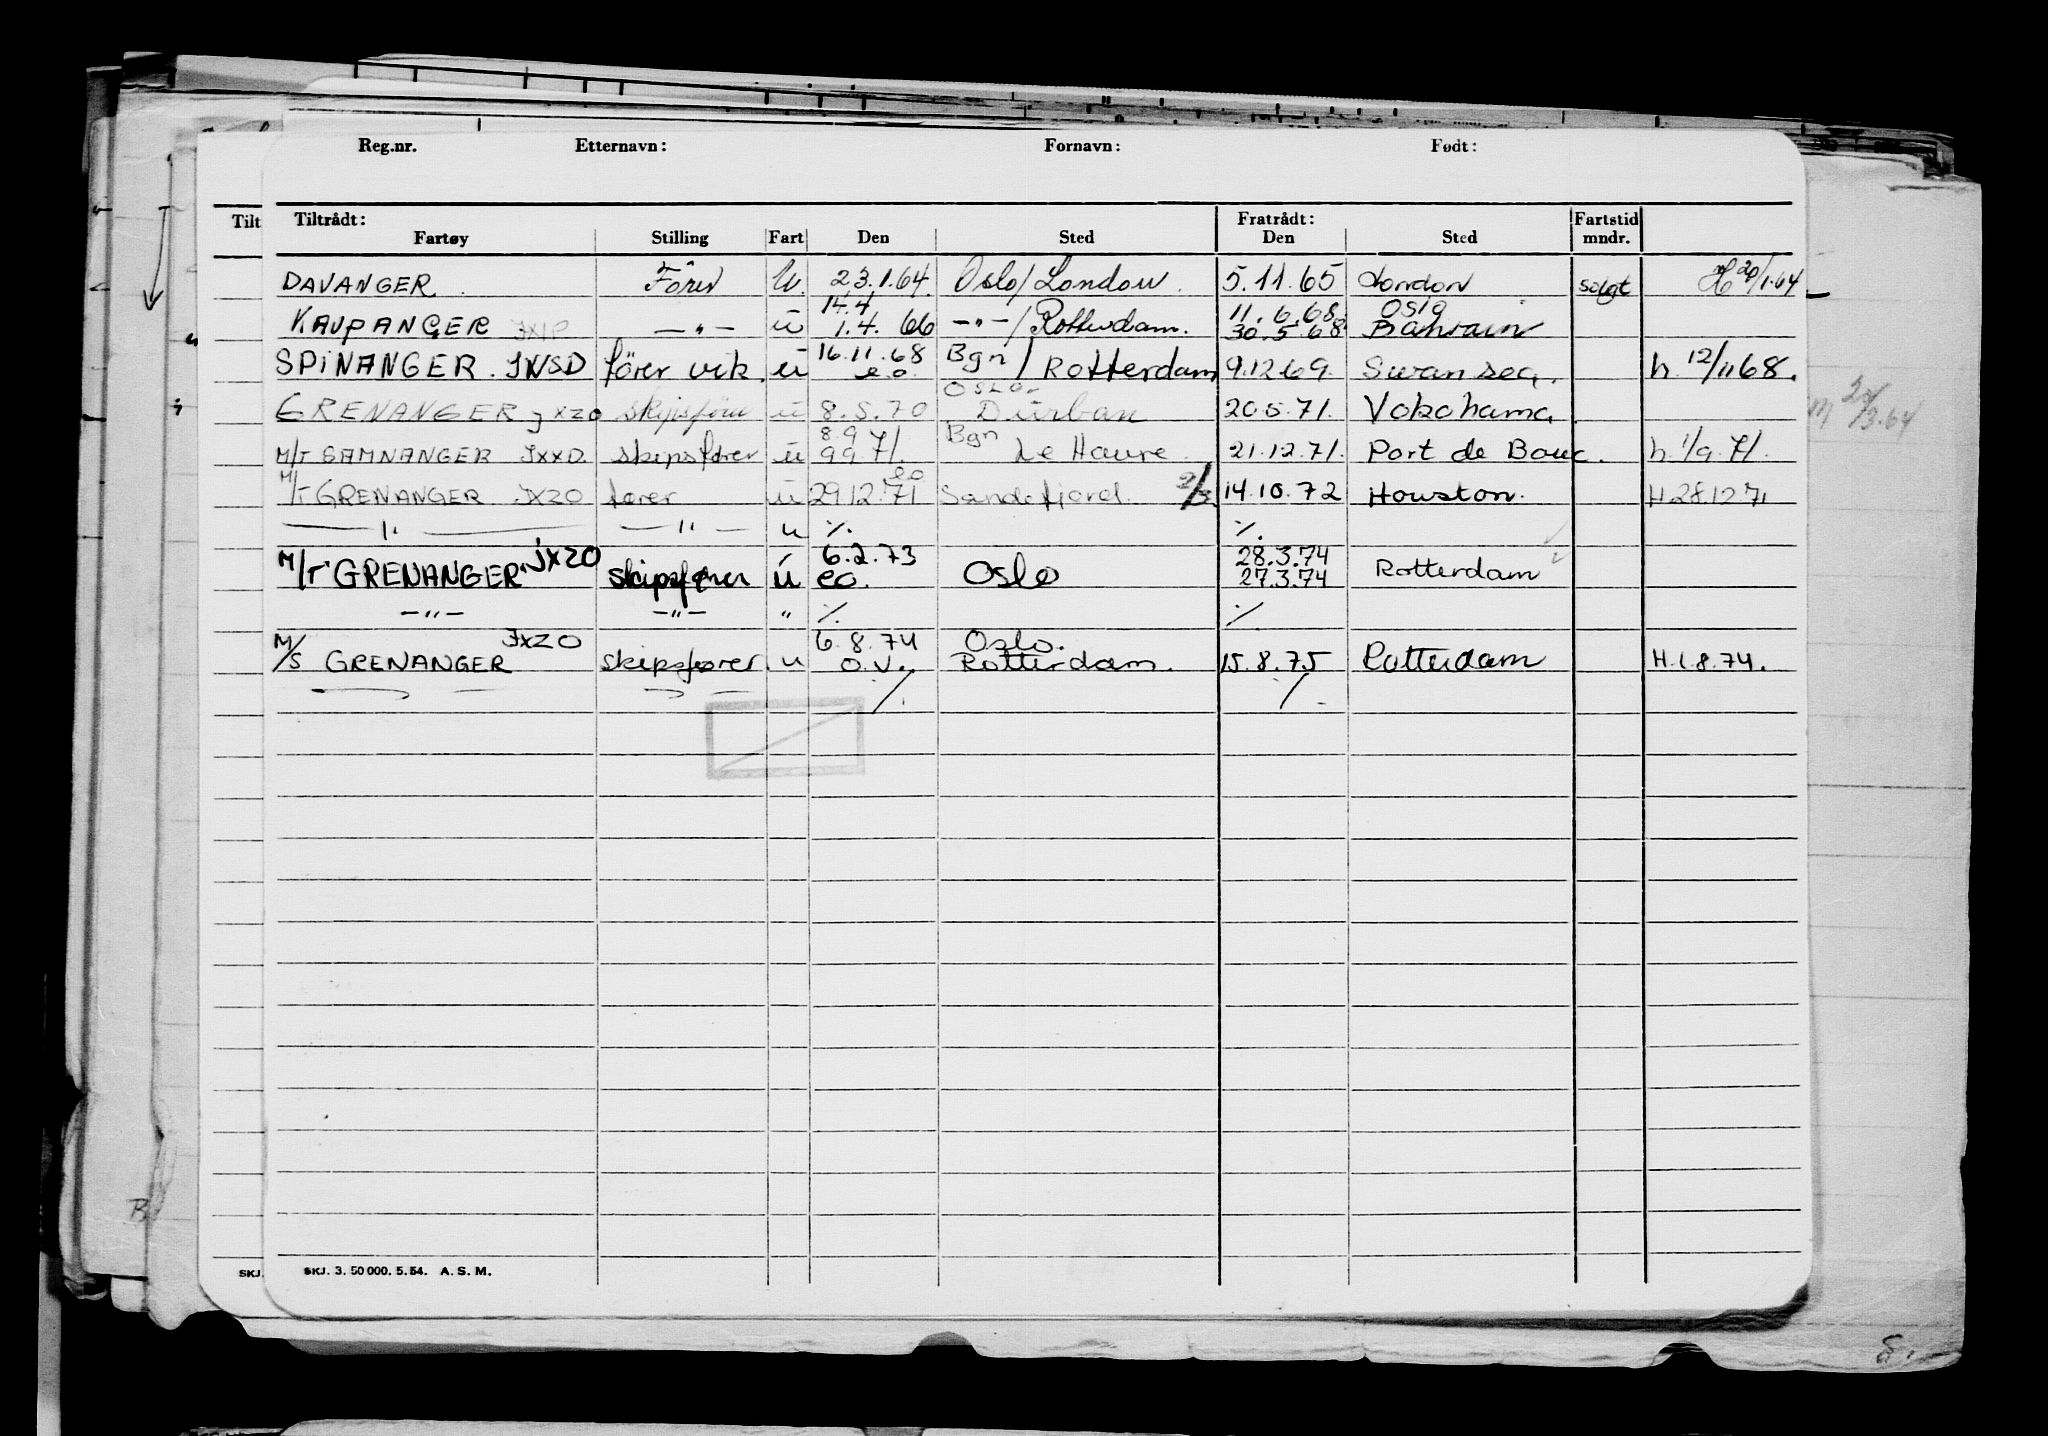 Reg.nr. Etternavn: Fornavn: Født:
Tilt Tiltrådt: Fratrådt: Fartstid
Fartøy Stilling Fart Den Sted Den Sted mndr.
DAVANGER Fører U. 23.1.64. Oslo/London. 5.11.65 London solgt H 20/1.64
14.4 11.6.68 Oslo
KAUPANGER JXIP —"— u 1.4. 66 —"—/Rotterdam. 30.5.68 Bahrain
16.11.68 Bgn
SPINANGER. JWSD fører vik. u e.o. / Rotterdam 9.12.69. Swansea. h. 12/11 68.
Oslo
GRENANGER JXZO skipsfører u 8.5.70 Durban 20.5.71. Yokohama
8.9 Bgn
M/T SAMNANGER JXXD skipsfører u 9.9.71. Le Havre. 21.12.71. Port de Bouc. h. 1/9.71.
eo
M/T GRENANGER JXZO fører u 29.12.71 Sandefjord. 2/3 14.10.72 Houston. H 28.12.71
—"— —"— u ./. ./.
JXZO 6.2.73 28.3.74
M/T "GRENANGER" skipsfører u eo. Oslo 27.3.74 Rotterdam
—"— —"— " ./. ./.
JXZO 6.8.74 Oslo.
M/S GRENANGER skipsfører. u o.v. Rotterdam. 15.8.75 Rotterdam H.1.8.74.
./. ./.
SKJ. SKJ. 3. 50 000. 5. 54. A. S. M.